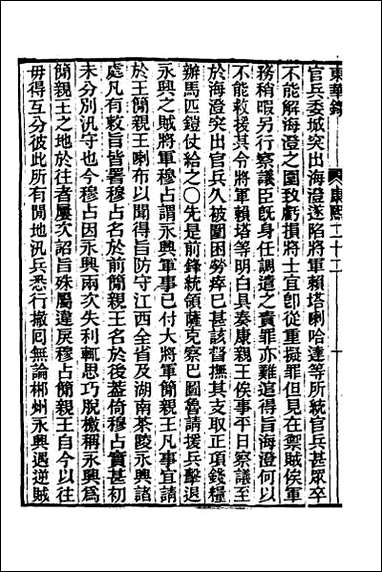 東華錄　康熙二十二
官兵委城突出海澄遂陷將軍賴塔喇哈達等所統官兵甚眾卒
不能解海澄之圍致虧損將士宜卽從重擬罪但見在禦賊俟軍
務稍暇另行察議臣旣身任調遣之責罪亦難逭得旨海澄何以
不能救援其令將軍賴塔等明白具奏康親王俟事平日察議至
於海澄突出官兵久被圍困勞瘁已甚該督撫其支取正項錢糧
辦馬匹鎧仗給之○先是前鋒統領薩克察巴圖魯請援兵擊退
永興之賊將軍穆占謂永興軍事已付大將軍簡親王凡事宜請
於王簡親王喇布以聞得旨防守江西全省及湖南茶陵永興諸
處凡有敕旨皆署穆占名於前簡親王名於後蓋倚穆占實甚初
未分別汛守也今穆占因永興兩次失利輒思巧脫檄稱永興爲
簡親王之地於往者屢次詔旨殊屬違戾穆占簡親王自今以往
毋得互分彼此所有閒地汛兵悉行撤囘無論郴州永興遇逆賊